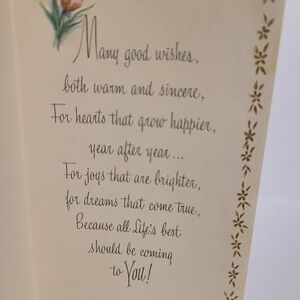 Many good wishes,
both warm and sincere,
For hearts that grow happier,
year after year...
For joys that are brighter,
for dreams that come true,
Because all Life's best
should be coming
to You!